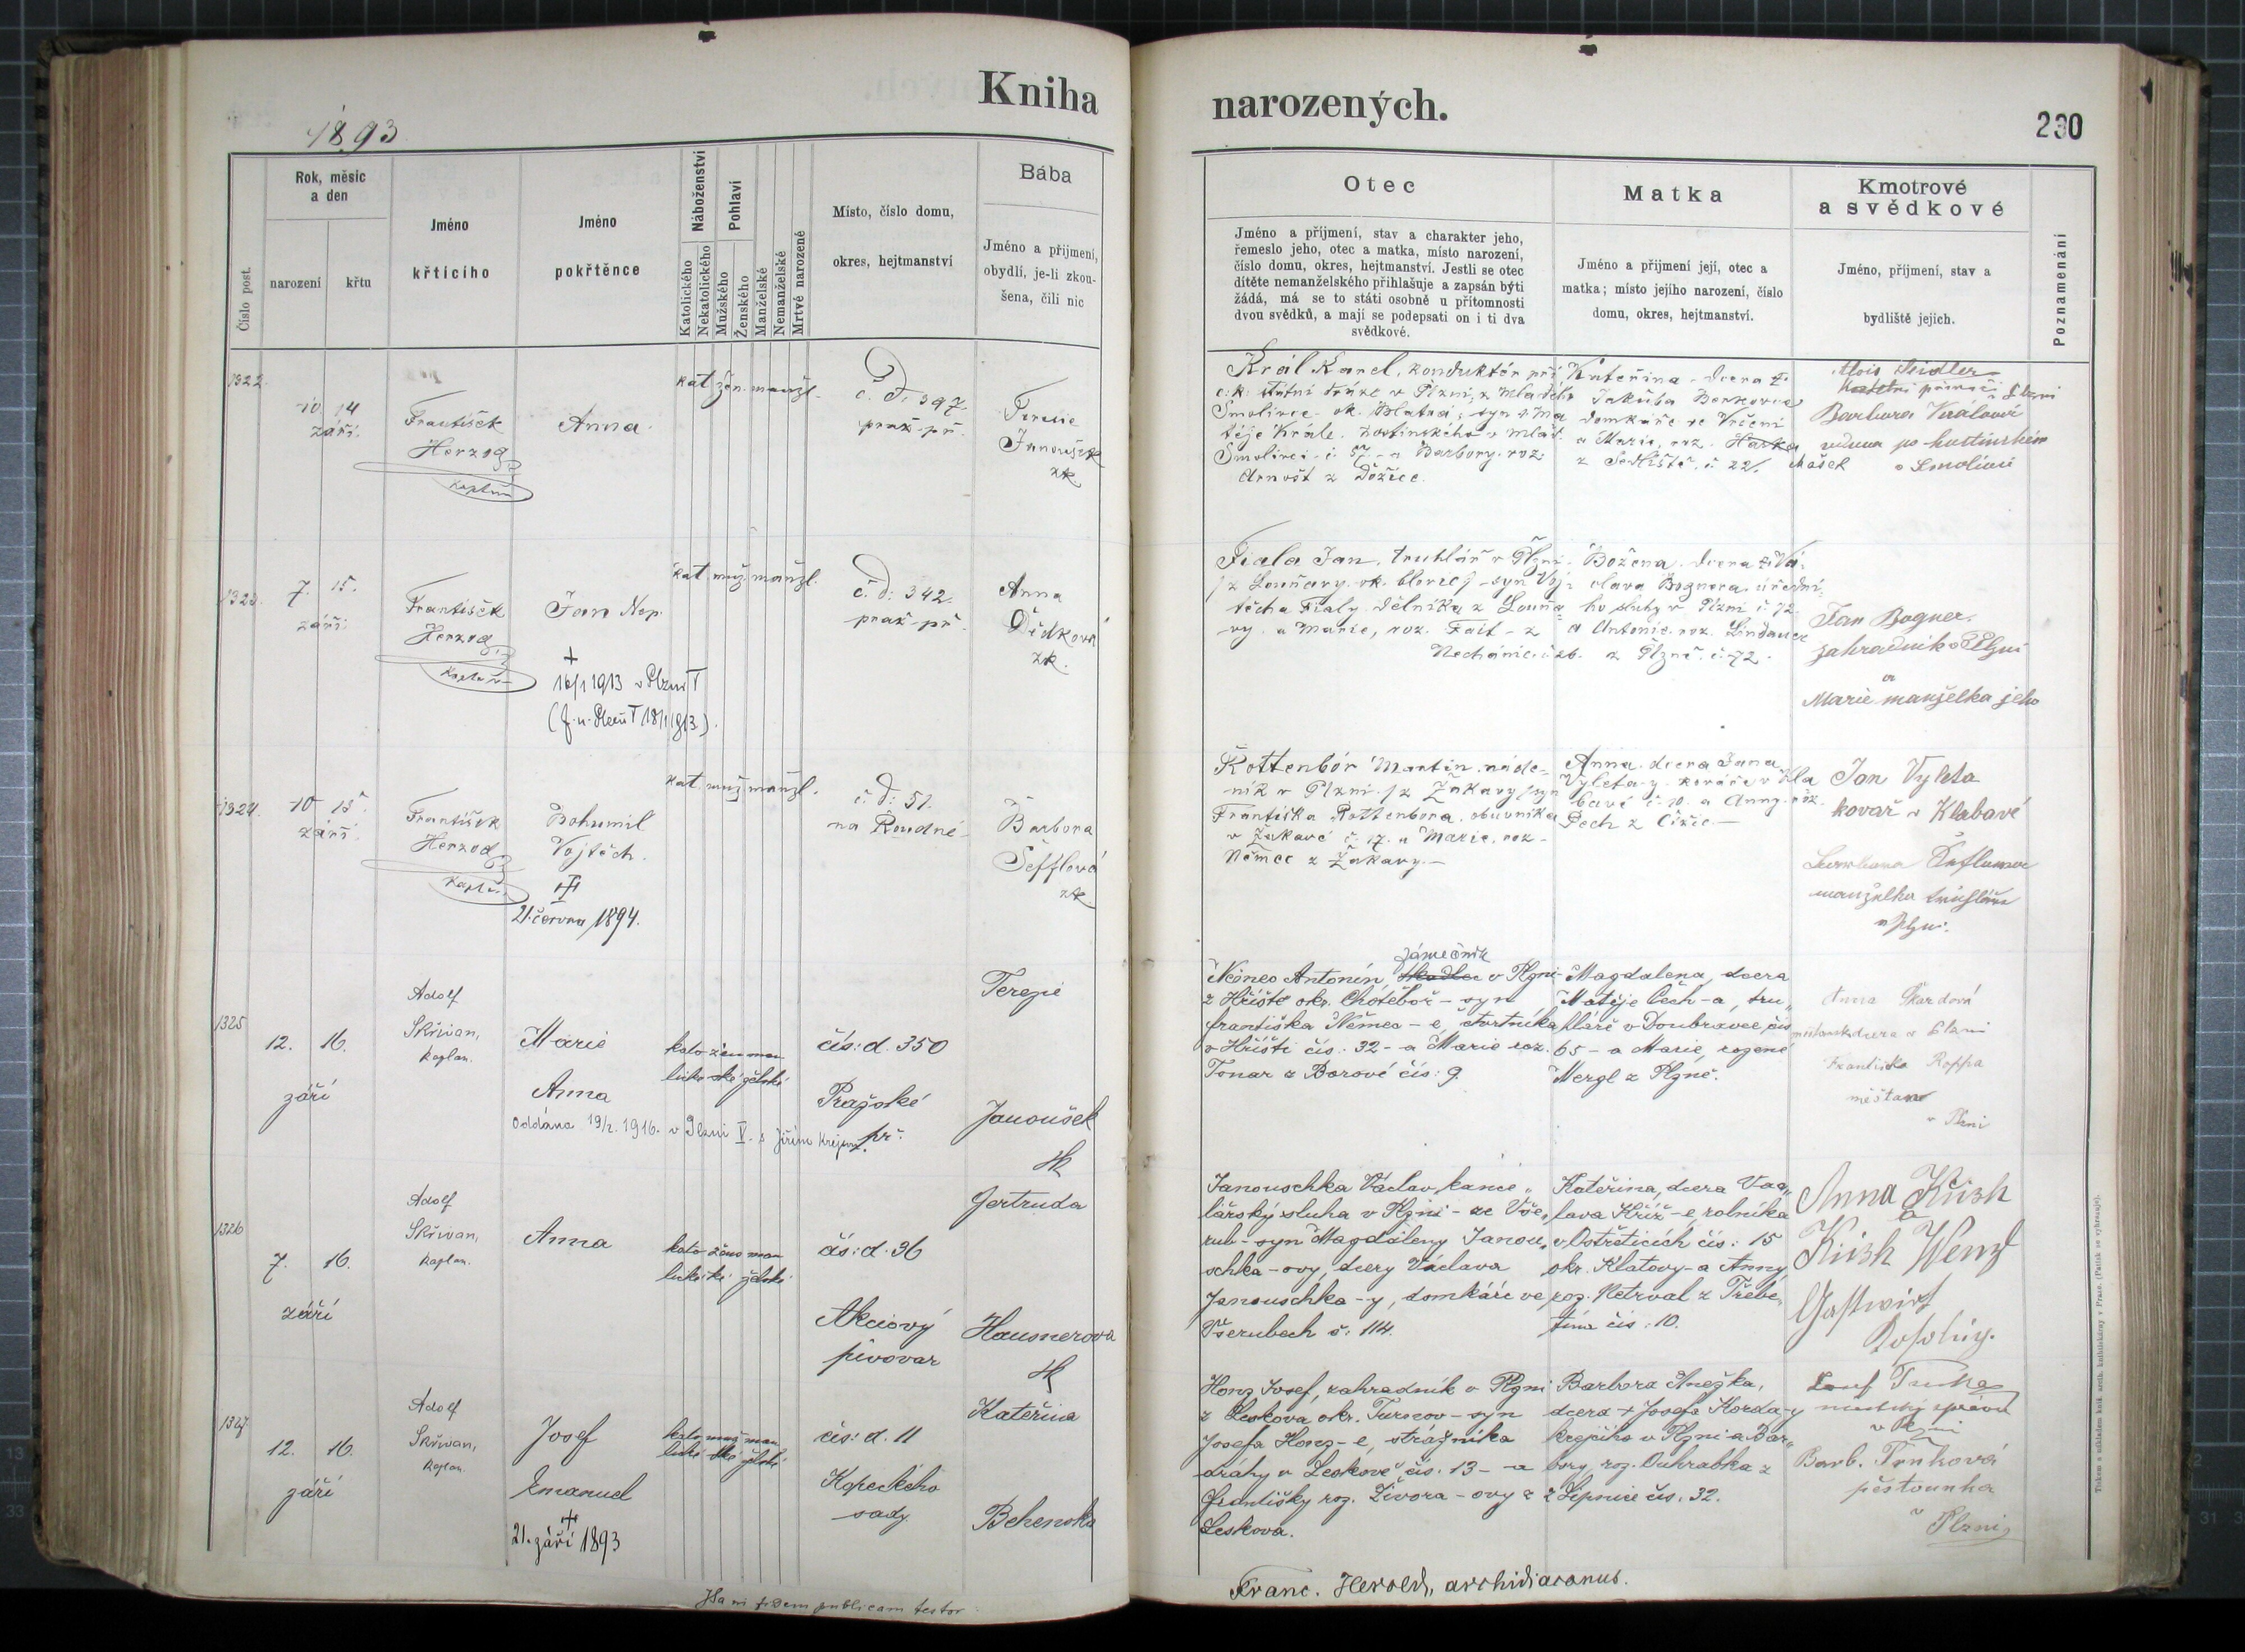 Kniha
narozených.
1893
230
Číslo post.
Rok, měsíc
a den
narození
křtu
Jméno
křtícího
Jméno
pokřtěnce
Náboženství
Katolického
Nekatolického
Pohlaví
Mužského
Ženského
Manželské
Nemanželské
Mrtvě narozené
Místo, číslo domu,
okres, hejtmanství
Bába
Jméno a přijmení,
obydlí, je-li zkou-
šena, čili nic
Otec
Jméno a příjmení, stav a charakter jeho,
řemeslo jeho, otec a matka, místo narození,
číslo domu, okres, hejtmanství. Jestli se otec
dítěte nemanželského přihlašuje a zapsán býti
žádá, má se to státi osobně u přítomnosti
dvou svědků, a mají se podepsati on i ti dva
svědkové.
Matka
Jméno a přijmení její, otec a
matka; místo jejího narození, číslo
domu, okres, hejtmanství.
Kmotrové
a svědkové
Jméno, příjmení, stav a
bydliště jejich.
Poznamenání
1322
10. 14
září.
František
Herzog
kaplan
Anna
kat. žen. manžl.
č. d. 397
praž. př.
Terezie
Janoušek
zk.
Král Karel, konduktér při
c. k. státní dráze v Plzni, z Mladého
Smolivce ok. Blatná; syn Ma
těje Krále, hostinského v Mlád.
Smolivci č. 57 a Barbory, roz.
Arnošt z Dožic.
Kateřina, dcera †
Jakuba
domkáře ve Vrčeni
a Marie, roz.
z Sedliště, č. 22.
Mašek
Alois Seidler
Barbora Králová
vdova po hostinském
v Smolivci
1323.
7. 15.
září.
František
Herzog
kaplan
Jan Nep.
+
16/1 1913 v Plzni T
(f. u. Plzeň T 18/1 1913).
kat. muž. manžl.
č. d. 342
praž. př.
Anna
Dědková
zk.
Fiala Jan, truhlář v Plzni
/z Louňavy ok. Hořice/ syn Voj
těcha Fialy dělníka z Louňa
vy a Marie, roz. Fait z
Nechanic č. 26.
Božena, dcera Vá
clava Bognera, úřední
ho sluhy v Plzni č. 72
a Antonie, roz. Lindauer
z Plzně č. 72.
Jan Bogner,
zahradník v Plzni
a
Marie manželka jeho
1324.
10 15.
září.
František
Herzog
kaplan
Bohumil
Vojtěch.
+
21. června 1894.
kat. muž. manžl.
č. d. 51.
na Roudné
Barbora
Šefflová
zk.
Rottenbór Martin, náde=
ník v Plzni /z Žákavy/ syn
Františka Rottenbora, obuvníka
v Žákavě č. 17. a Marie, roz.
Němec z Žákavy.—
Anna, dcera Jana
Vylety, kováře v Kla
bavě č. 10. a Anny, roz.
Pech z Čižic.—
Jan Vyleta
kovář v Klabavě
manželka truhláře
v Plzni.
1325
12. 16.
září
Adolf
Skřivan,
kaplan.
Marie
Anna
Oddána 19/2. 1916. v Plzni V. s Jiřím Krejčím.
kato- žen- man
lické ské želské
čís: d. 350
Pražské
př.
Terezie
Janoušek
zk
Němec Antonín, zámečník v Plzni
z Hříště okr. Chotěboř – syn
Františka Němec-e, čtvrtníka
v Hříšti čís: 32 – a Marie roz.
Tonar z Borové čís: 9.
Magdalena, dcera
Matěje Čech-a, tru„
hláře v Doubravce čís
65 – a Marie, rozené
Mergl z Plzně.
Anna Škardová
měšťanská dcera v Plzni
Františka Roppa
měšťan
v Plzni
1326
7. 16.
září
Adolf
Skřivan,
kaplan.
Anna
kato- žens man
lické ké želské
čís: d. 36
Akciový
pivovar
Gertruda
Hausnerova
zk
Janouschka Václav, kance„
lářský sluha v Plzni – ze Vše„
rub – syn Magdaleny Janou„
schka-ovy, dcery Václava
Janouschka-y, domkáře ve
Všerubech č: 114.
Kateřina, dcera Vác„
lava Kříž-e, rolníka
v Ostřeticích čís: 15
okr. Klatovy – a Anny
roz. Netrval z Třebý„
tína čís: 10.
Anna Křish
a
Křish Wenzl
Gastwirt
1327
12. 16.
září
Adolf
Skřivan,
kaplan.
Josef
Emanuel
+
21. září 1893
kato- muž man
lické ské želské
čís: d. 11
Kopeckého
sady.
Kateřina
Behenska
Honz Josef, zahradník v Plzni
z Leskova okr. Turnov – syn
Josefa Honz-e, strážníka
dráhy v Leskově čís. 13 – a
Františky roz. Živora-ovy z
Leskova.
Barbora Anežka,
dcera + Josefa Korda-y
krejčího v Plzni a Bar„
bory, roz. Ouhrabka z
z Lípnice čís. 32.
v Plzni
Barb. Trnková
pěstounka
v Plzni
Ita ni fidem publicam testor
Franc. Herold, archidiaconus.